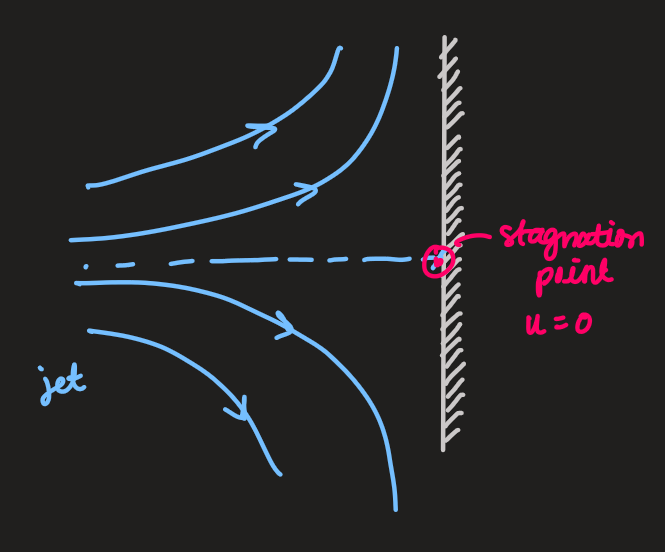 stagnation
point
u = 0
jet